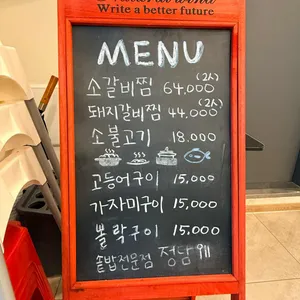 Write a better future
MENU
소갈비찜 64,000 (2人)
돼지갈비찜 44,000 (2人)
소불고기 18,000
고등어구이 15,000
가자미구이 15,000
볼락구이 15,000
솥밥전문점 정담